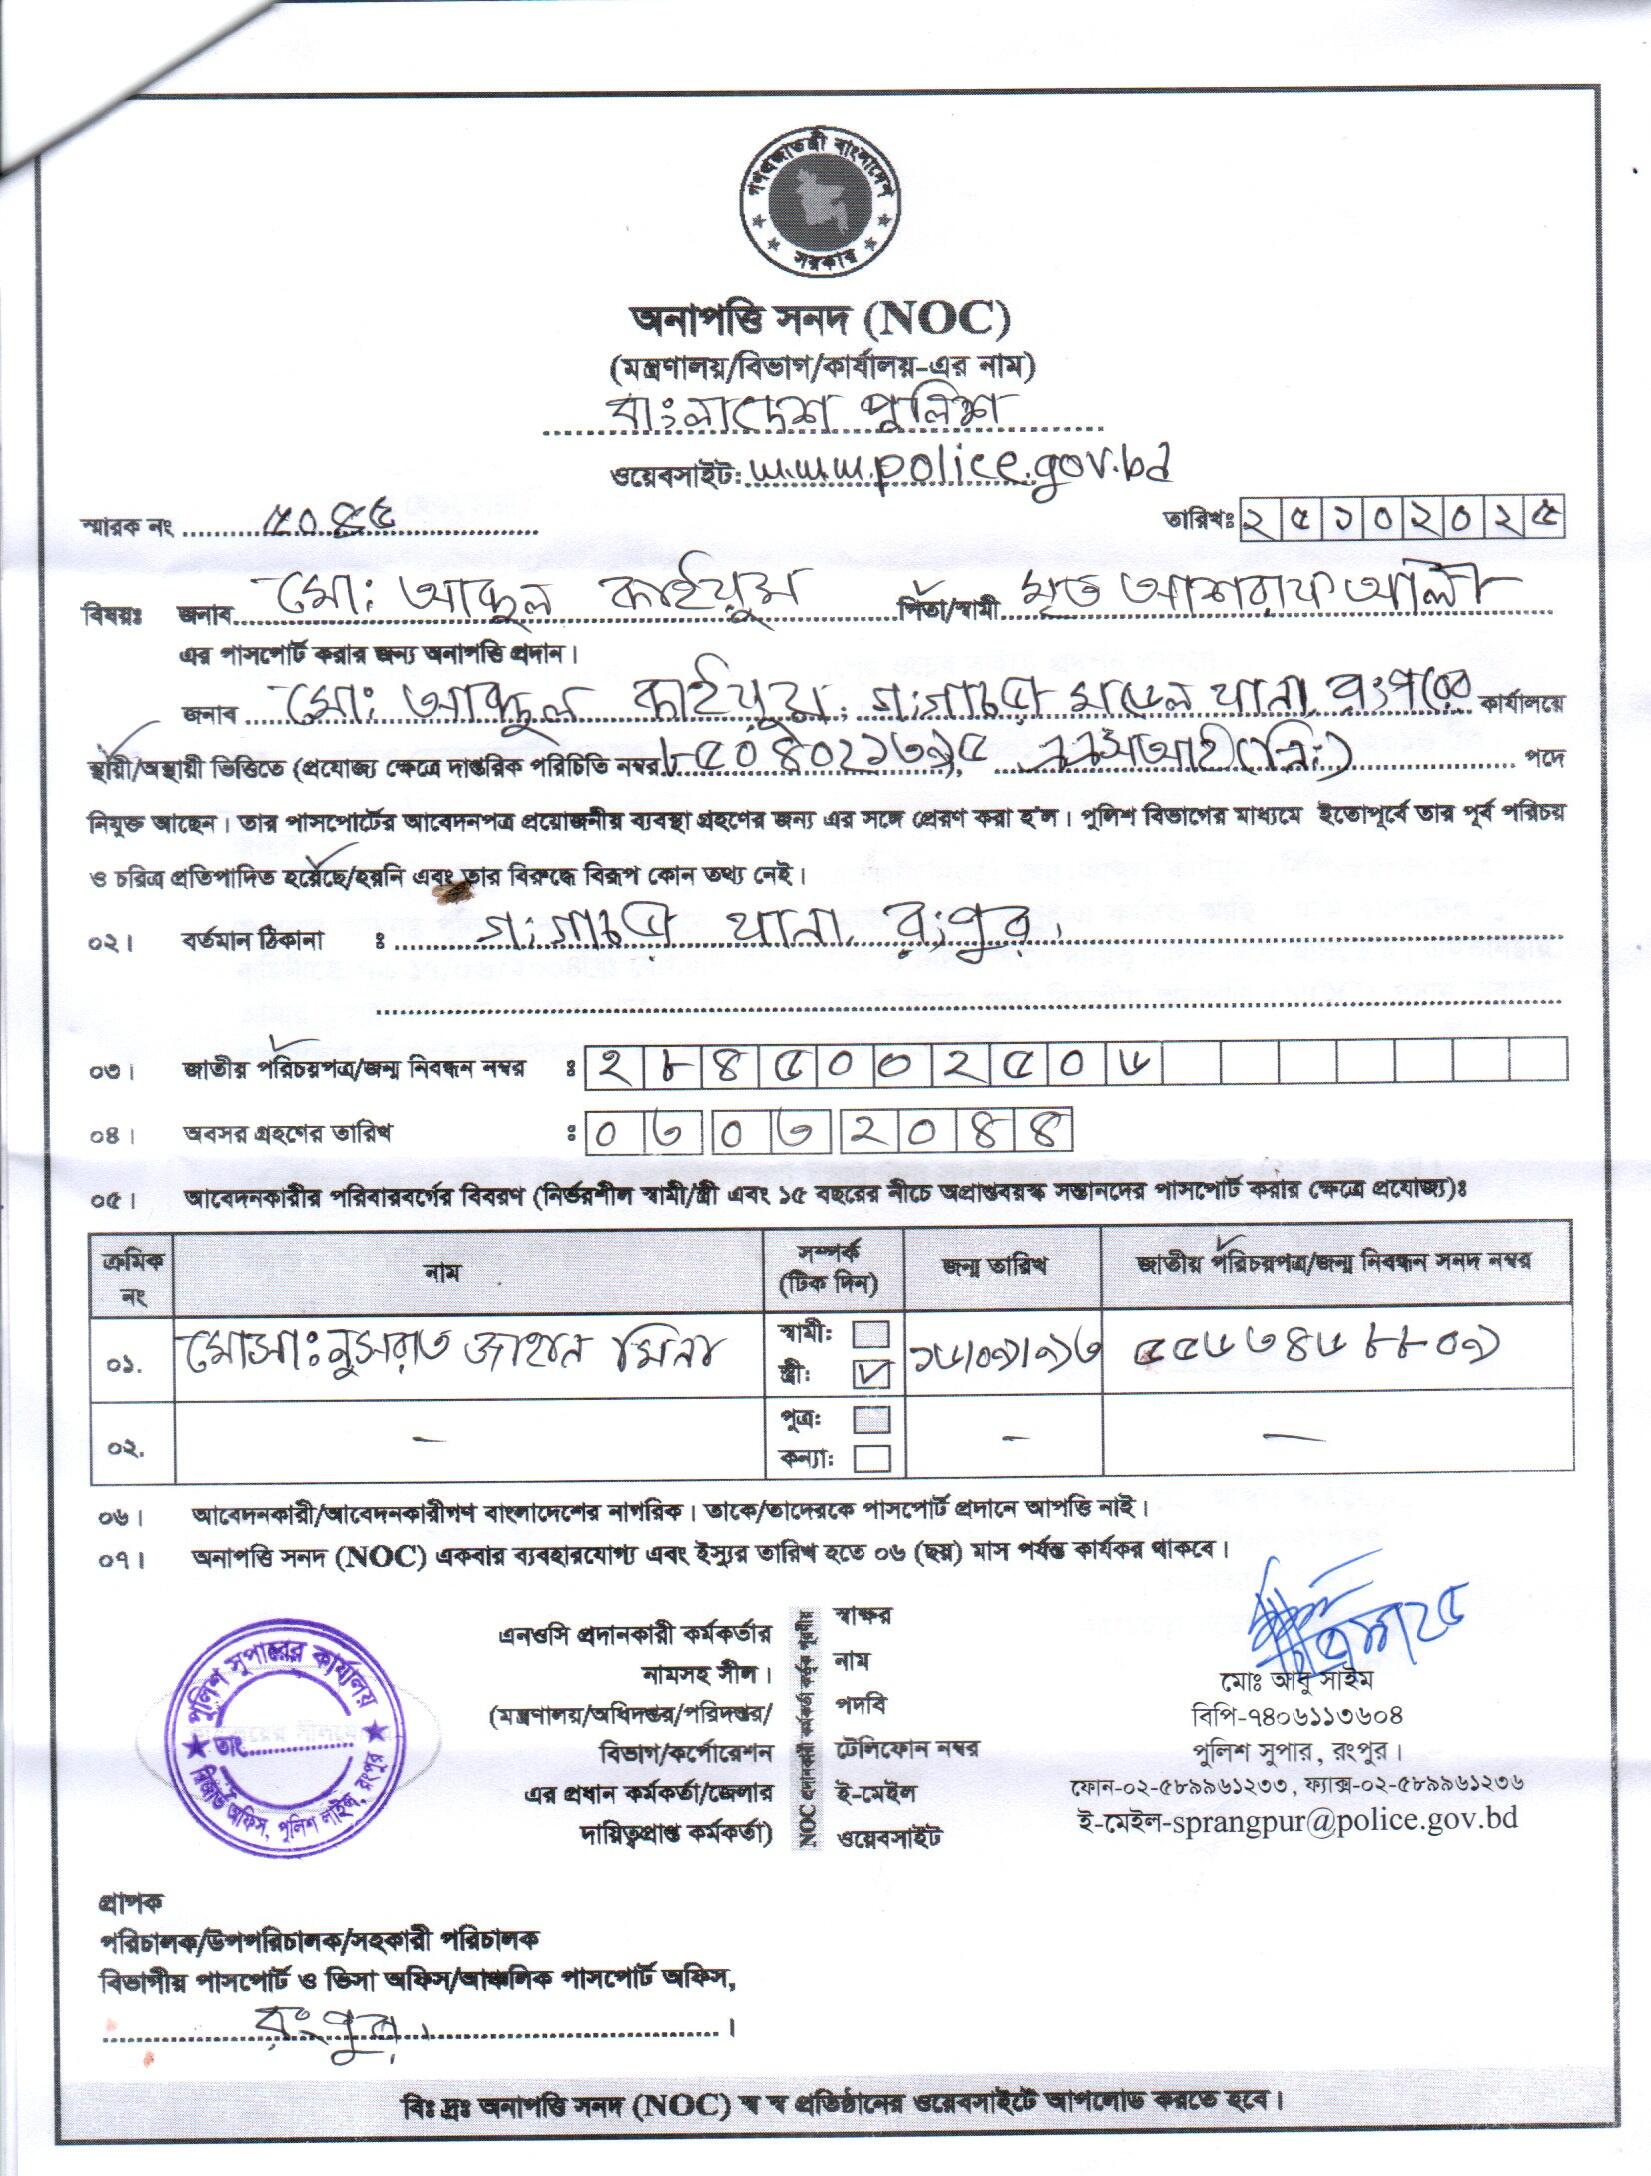 গণপ্রজাতন্ত্রী বাংলাদেশ
সরকার
অনাপত্তি সনদ (NOC)
(মন্ত্রণালয়/বিভাগ/কার্যালয়-এর নাম)
বাংলাদেশ পুলিশ
ওয়েবসাইট: www.police.gov.bd
স্মারক নং ৫০৪৫ তারিখঃ ২৫১০২০২৫
বিষয়ঃ জনাব মো: আব্দুল কাইয়ুম পিতা/স্বামী মৃত আশরাফ আলী
এর পাসপোর্ট করার জন্য অনাপত্তি প্রদান।
জনাব মো: আব্দুল কাইয়ুম, গংগাচড়া মডেল থানা, রংপুরের কার্যালয়ে
স্থায়ী/অস্থায়ী ভিত্তিতে (প্রযোজ্য ক্ষেত্রে দাপ্তরিক পরিচিতি নম্বর ৮৫০৪০২১৩৯৫ এসআই(নিঃ) পদে
নিযুক্ত আছেন। তার পাসপোর্টের আবেদনপত্র প্রয়োজনীয় ব্যবস্থা গ্রহণের জন্য এর সঙ্গে প্রেরণ করা হ'ল। পুলিশ বিভাগের মাধ্যমে ইতোপূর্বে তার পূর্ব পরিচয়
ও চরিত্র প্রতিপাদিত হয়েছে/হয়নি এবং তার বিরুদ্ধে বিরূপ কোন তথ্য নেই।
০২। বর্তমান ঠিকানা : গংগাচড়া থানা, রংপুর।
০৩। জাতীয় পরিচয়পত্র/জন্ম নিবন্ধন নম্বর : ২৮৪৫০০২৫০৬
০৪। অবসর গ্রহণের তারিখ : ০৩০৩২০৪৪
০৫। আবেদনকারীর পরিবারবর্গের বিবরণ (নির্ভরশীল স্বামী/স্ত্রী এবং ১৫ বছরের নীচে অপ্রাপ্তবয়স্ক সন্তানদের পাসপোর্ট করার ক্ষেত্রে প্রযোজ্য)ঃ
ক্রমিক নং নাম সম্পর্ক (টিক দিন) জন্ম তারিখ জাতীয় পরিচয়পত্র/জন্ম নিবন্ধন সনদ নম্বর
০১. মোসা: নুসরাত জাহান মিনা স্বামী: স্ত্রী: ১৬/০৯/৯৩ ৫৫৬৩৪৬৮৮০৯
০২. – পুত্র: কন্যা: – –
০৬। আবেদনকারী/আবেদনকারীগণ বাংলাদেশের নাগরিক। তাকে/তাদেরকে পাসপোর্ট প্রদানে আপত্তি নাই।
০৭। অনাপত্তি সনদ (NOC) একবার ব্যবহারযোগ্য এবং ইস্যুর তারিখ হতে ০৬ (ছয়) মাস পর্যন্ত কার্যকর থাকবে।
পুলিশ সুপারের কার্যালয়
তাং
রিজার্ভ অফিস, পুলিশ লাইন্স, রংপুর
এনওসি প্রদানকারী কর্মকর্তার
নামসহ সীল।
(মন্ত্রণালয়/অধিদপ্তর/পরিদপ্তর/
বিভাগ/কর্পোরেশন
এর প্রধান কর্মকর্তা/জেলার
দায়িত্বপ্রাপ্ত কর্মকর্তা)
NOC প্রদানকারী কর্মকর্তা কর্তৃক পূরণীয়
স্বাক্ষর
নাম
পদবি
টেলিফোন নম্বর
ই-মেইল
ওয়েবসাইট
মোঃ আবু সাইম
বিপি-৭৪০৬১১৩৬০৪
পুলিশ সুপার, রংপুর।
ফোন-০২-৫৮৯৯৬১২৩৩, ফ্যাক্স-০২-৫৮৯৯৬১২৩৬
ই-মেইল-sprangpur@police.gov.bd
প্রাপক
পরিচালক/উপপরিচালক/সহকারী পরিচালক
বিভাগীয় পাসপোর্ট ও ভিসা অফিস/আঞ্চলিক পাসপোর্ট অফিস,
রংপুর।
বিঃ দ্রঃ অনাপত্তি সনদ (NOC) স্ব স্ব প্রতিষ্ঠানের ওয়েবসাইটে আপলোড করতে হবে।